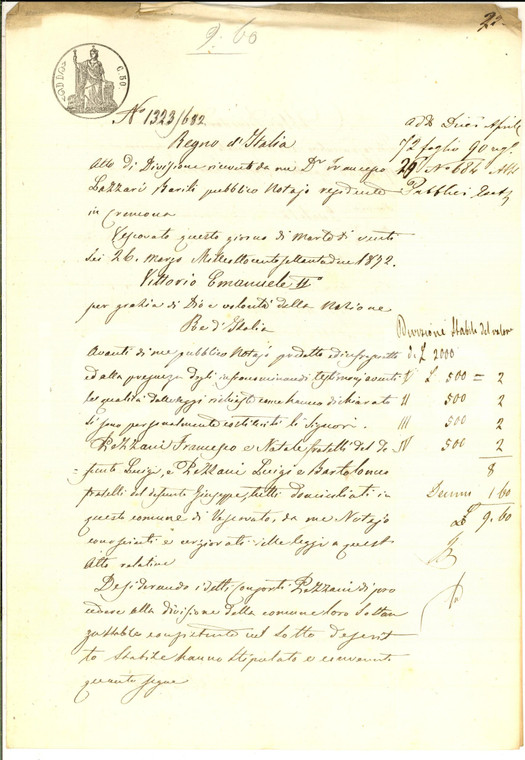 22
9.60
C. 50.
N° 1323/682
Regno d'Italia
Atto di Divisione ricevuto da me Dr Francesco
Lazzari Barili pubblico Notajo residente
in Cremona
Vescovato questo giorno di Martedi venti
sei 26. Marzo Milleottocentosettantadue 1872.
Vittorio Emanuele II°
per grazia di Dio e volontà della Nazione
Re d'Italia
Avanti di me pubblico Notajo predetto ed infrascritto
ed alla presenza degli testimonj aventi
le qualità dalle leggi richieste come hanno dichiarato
si sono personalmente costituiti li Signori.
Pezzani Francesco e Natale fratelli del de
funto Luigi, e Pezzani Luigi e Bartolomeo
fratelli del defunto Giuseppe, tutti domiciliati in
questo comune di Vescovato, da me Notajo
conosciuti e delle leggi a quest
Atto relative
Desiderando i detti Pezzani di pro
cedere alla divisione della comune loro Sostan
za stabile nel sotto descrit
to Stabile hanno stipulato e
quanto segue
addi Dieci Aprile
72 foglio 90
29 N° 684 Atti
Pubblici
Divisione Stabile del valore
di £ 2000
I £ 500 = 2
II 500 2
III 500 2
IV 500 2
8
Decimi 1.60
£ 9.60